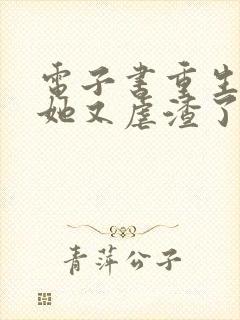 電子書重生
她又虐渣了
青萍公子